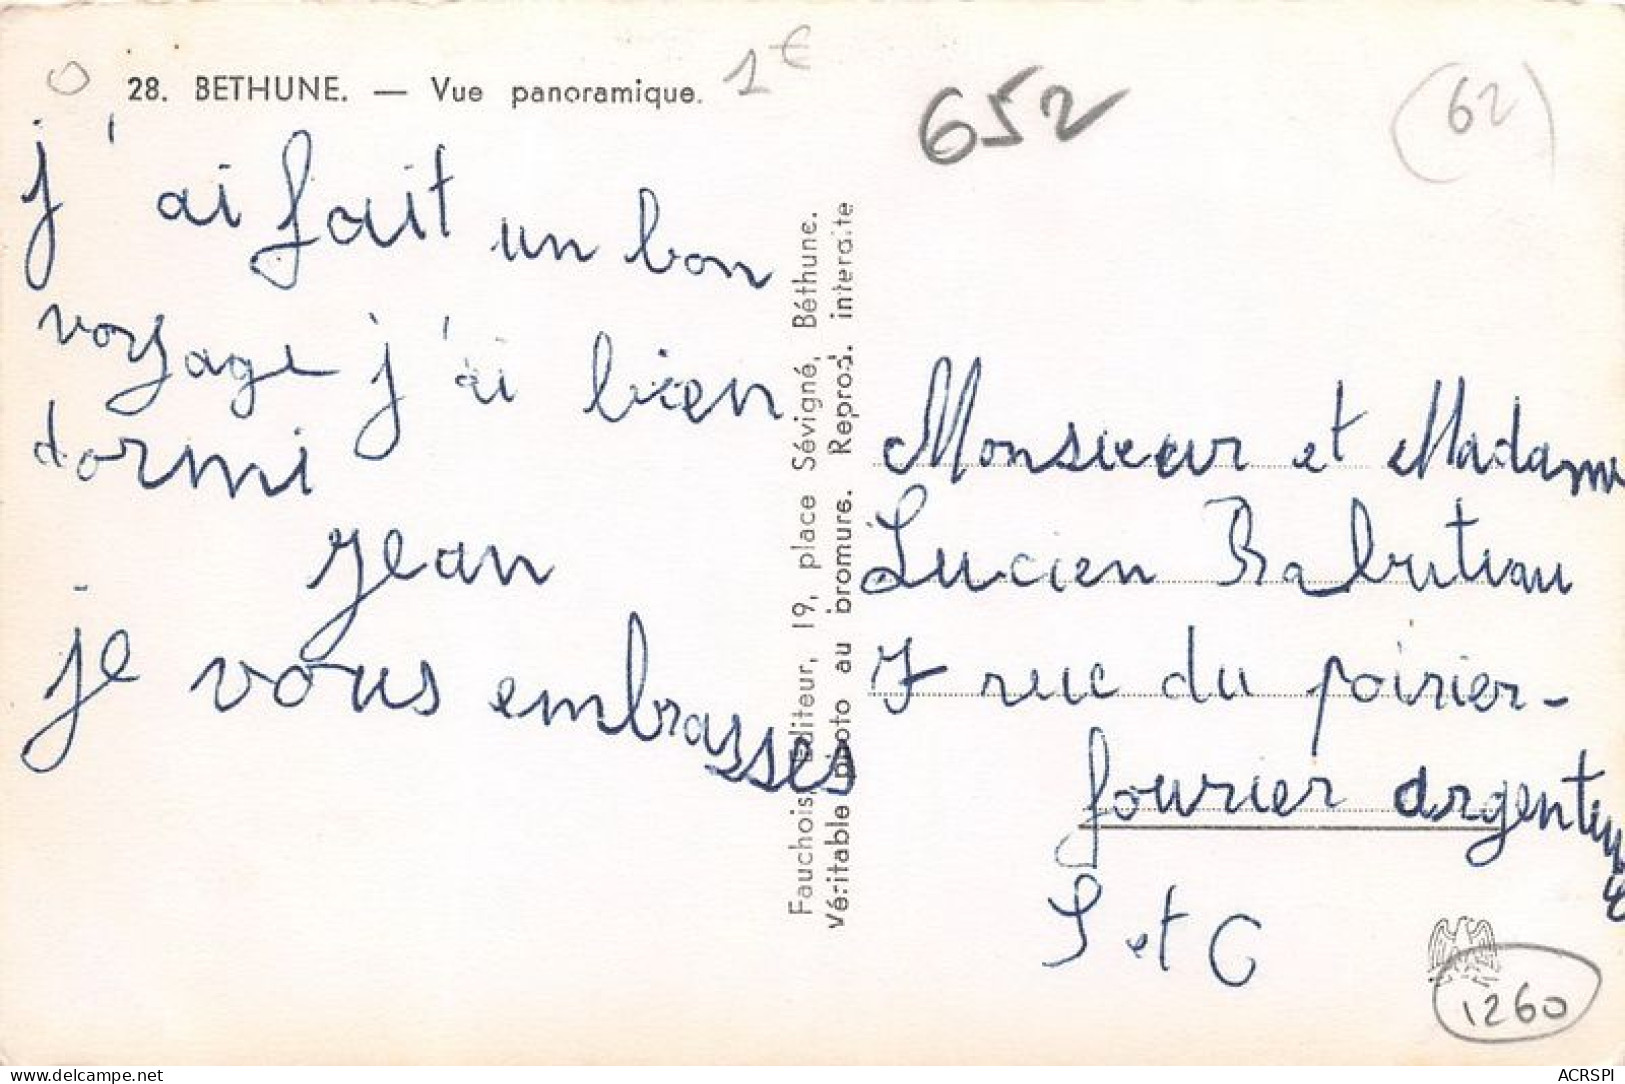 28. BETHUNE. — Vue panoramique.
1€
652
(62)
j'ai fait un bon
voyage j'ai bien
dormi
Jean
je vous embrasses
Fauchois, Editeur, 19, place Sévigné, Béthune.
Véritable photo au bromure. Reprod. interdite
Monsieur et Madame
Lucien Rabuteau
7 rue du poirier-
fourier argenteuil
S et O
1260
ACRSPI